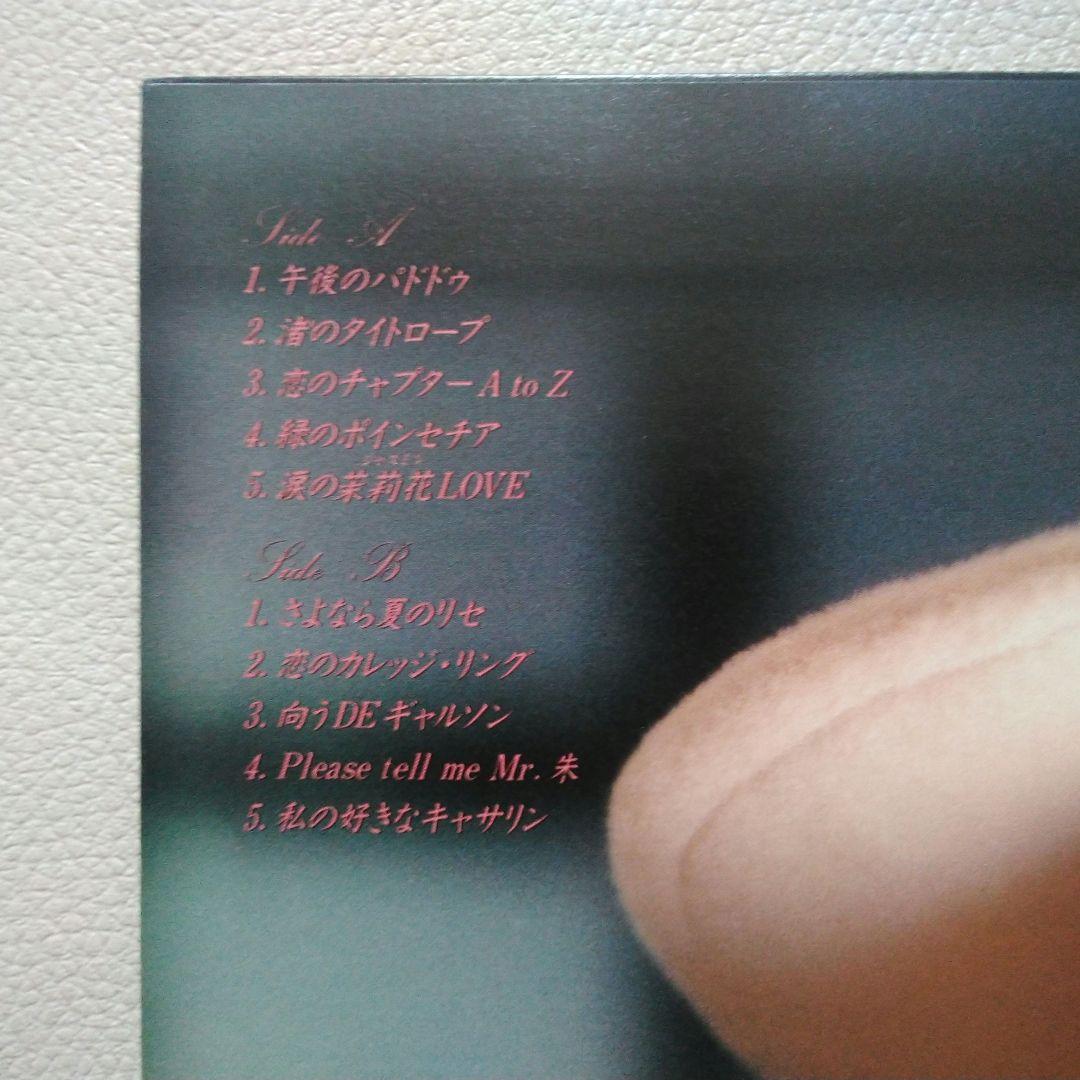 Side A
1. 午後のパドドゥ
2. 渚のタイトロープ
3. 恋のチャプターA to Z
4. 緑のポインセチア
ジャスミン
5. 涙の茉莉花LOVE
Side B
1. さよなら夏のリセ
2. 恋のカレッジ・リング
3. 向うDEギャルソン
4. Please tell me Mr. 朱
5. 私の好きなキャサリン